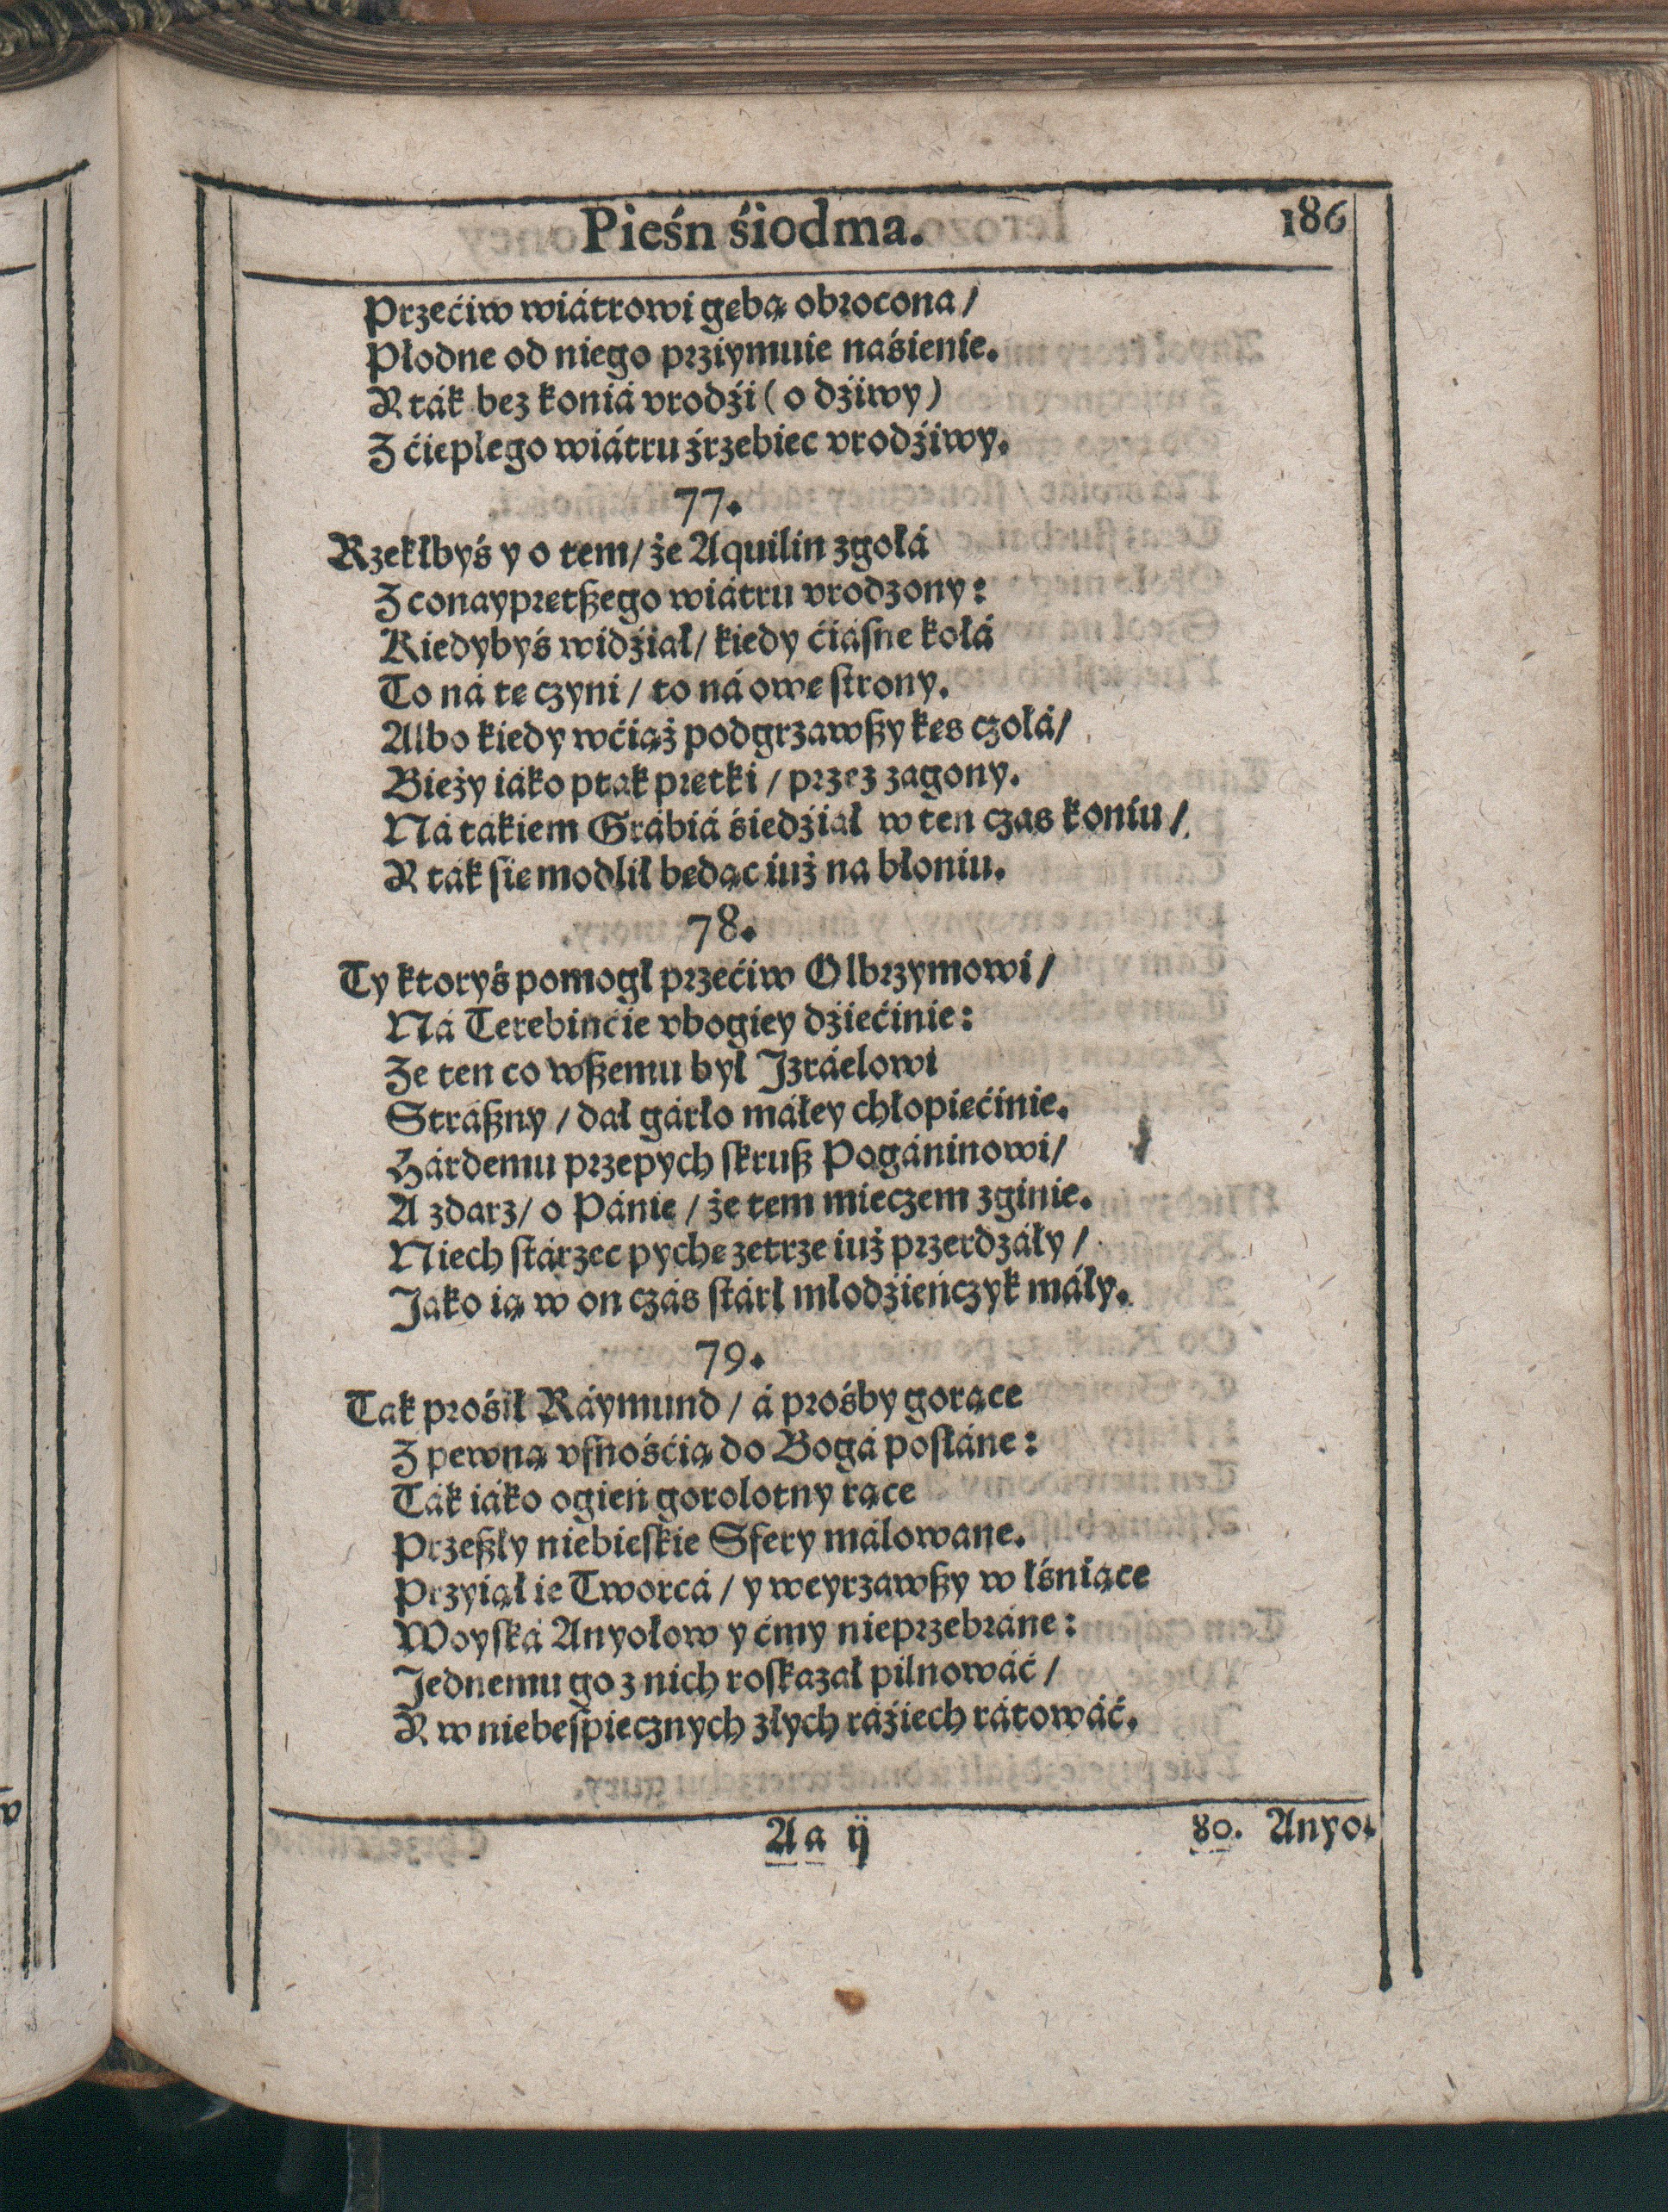 Pieśń śiodma.
186
Przećiw wiátrowi gębą obrocona/
Płodne od niego przyimuie naśienie.
Y ták bez koniá vrodźi (o dźiwy)
Z ćiepłego wiátru źrzebiec vrodźiwy.
77.
Rzekłbyś y o tem/ że Aquilin zgołá
Z conayprętßego wiátru vrodzony:
Kiedybyś widźiał/ kiedy ćiásne kołá
To ná te czyni/ to ná owe strony.
Albo kiedy wćiąż podgrzawßy kęs czołá/
Bieży iáko ptak prętki/ przez zagony.
Ná tákiem Grábiá śiedźiał w ten czas koniu/
Y ták się modlił będąc iuż na błoniu.
78.
Ty ktoryś pomogł przećiw Olbrzymowi/
Ná Terebinćie vbogiey dźiećinie:
Ze ten co wßemu był Jzráelowi
Stráßny/ dał gárło máłey chłopiećinie.
Hárdemu przepych skruß Pogáninowi/
A zdarz/ o Pánie/ że tem mieczem zginie.
Niech stárzec pychę zetrze iuż przerdzáły/
Jako ią w on czás stárł młodźieńczyk máły.
79.
Tak prośił Ráymund/ á prośby gorące
Z pewną vfnośćią do Bogá posłáne:
Ták iáko ogień gorolotny rące
Przeßły niebieskie Sfery málowane.
Przyiął ie Tworcá/ y weyrzawßy w łśniące
Woyská Anyołow y ćmy nieprzebráne:
Jednemu go z nich roskazał pilnowáć/
Y w niebespiecznych złych ráźiech rátowáć.
Aa ij
80. Anyoł